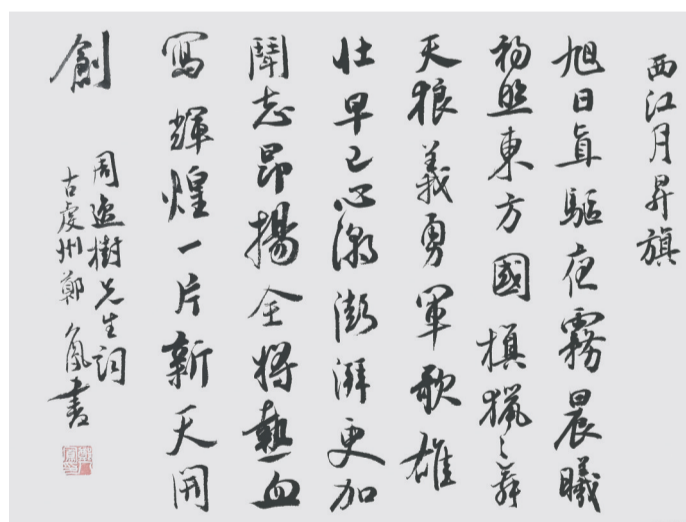 西江月昇旗
旭日直驅夜霧晨曦
初照東方國旗獵々舞
天狼義勇軍歌雄
壯早已心潮澎湃更加
鬪志昂揚全將熱血
寫輝煌一片新天開
創
周樹先生詞
古虔州鄭書